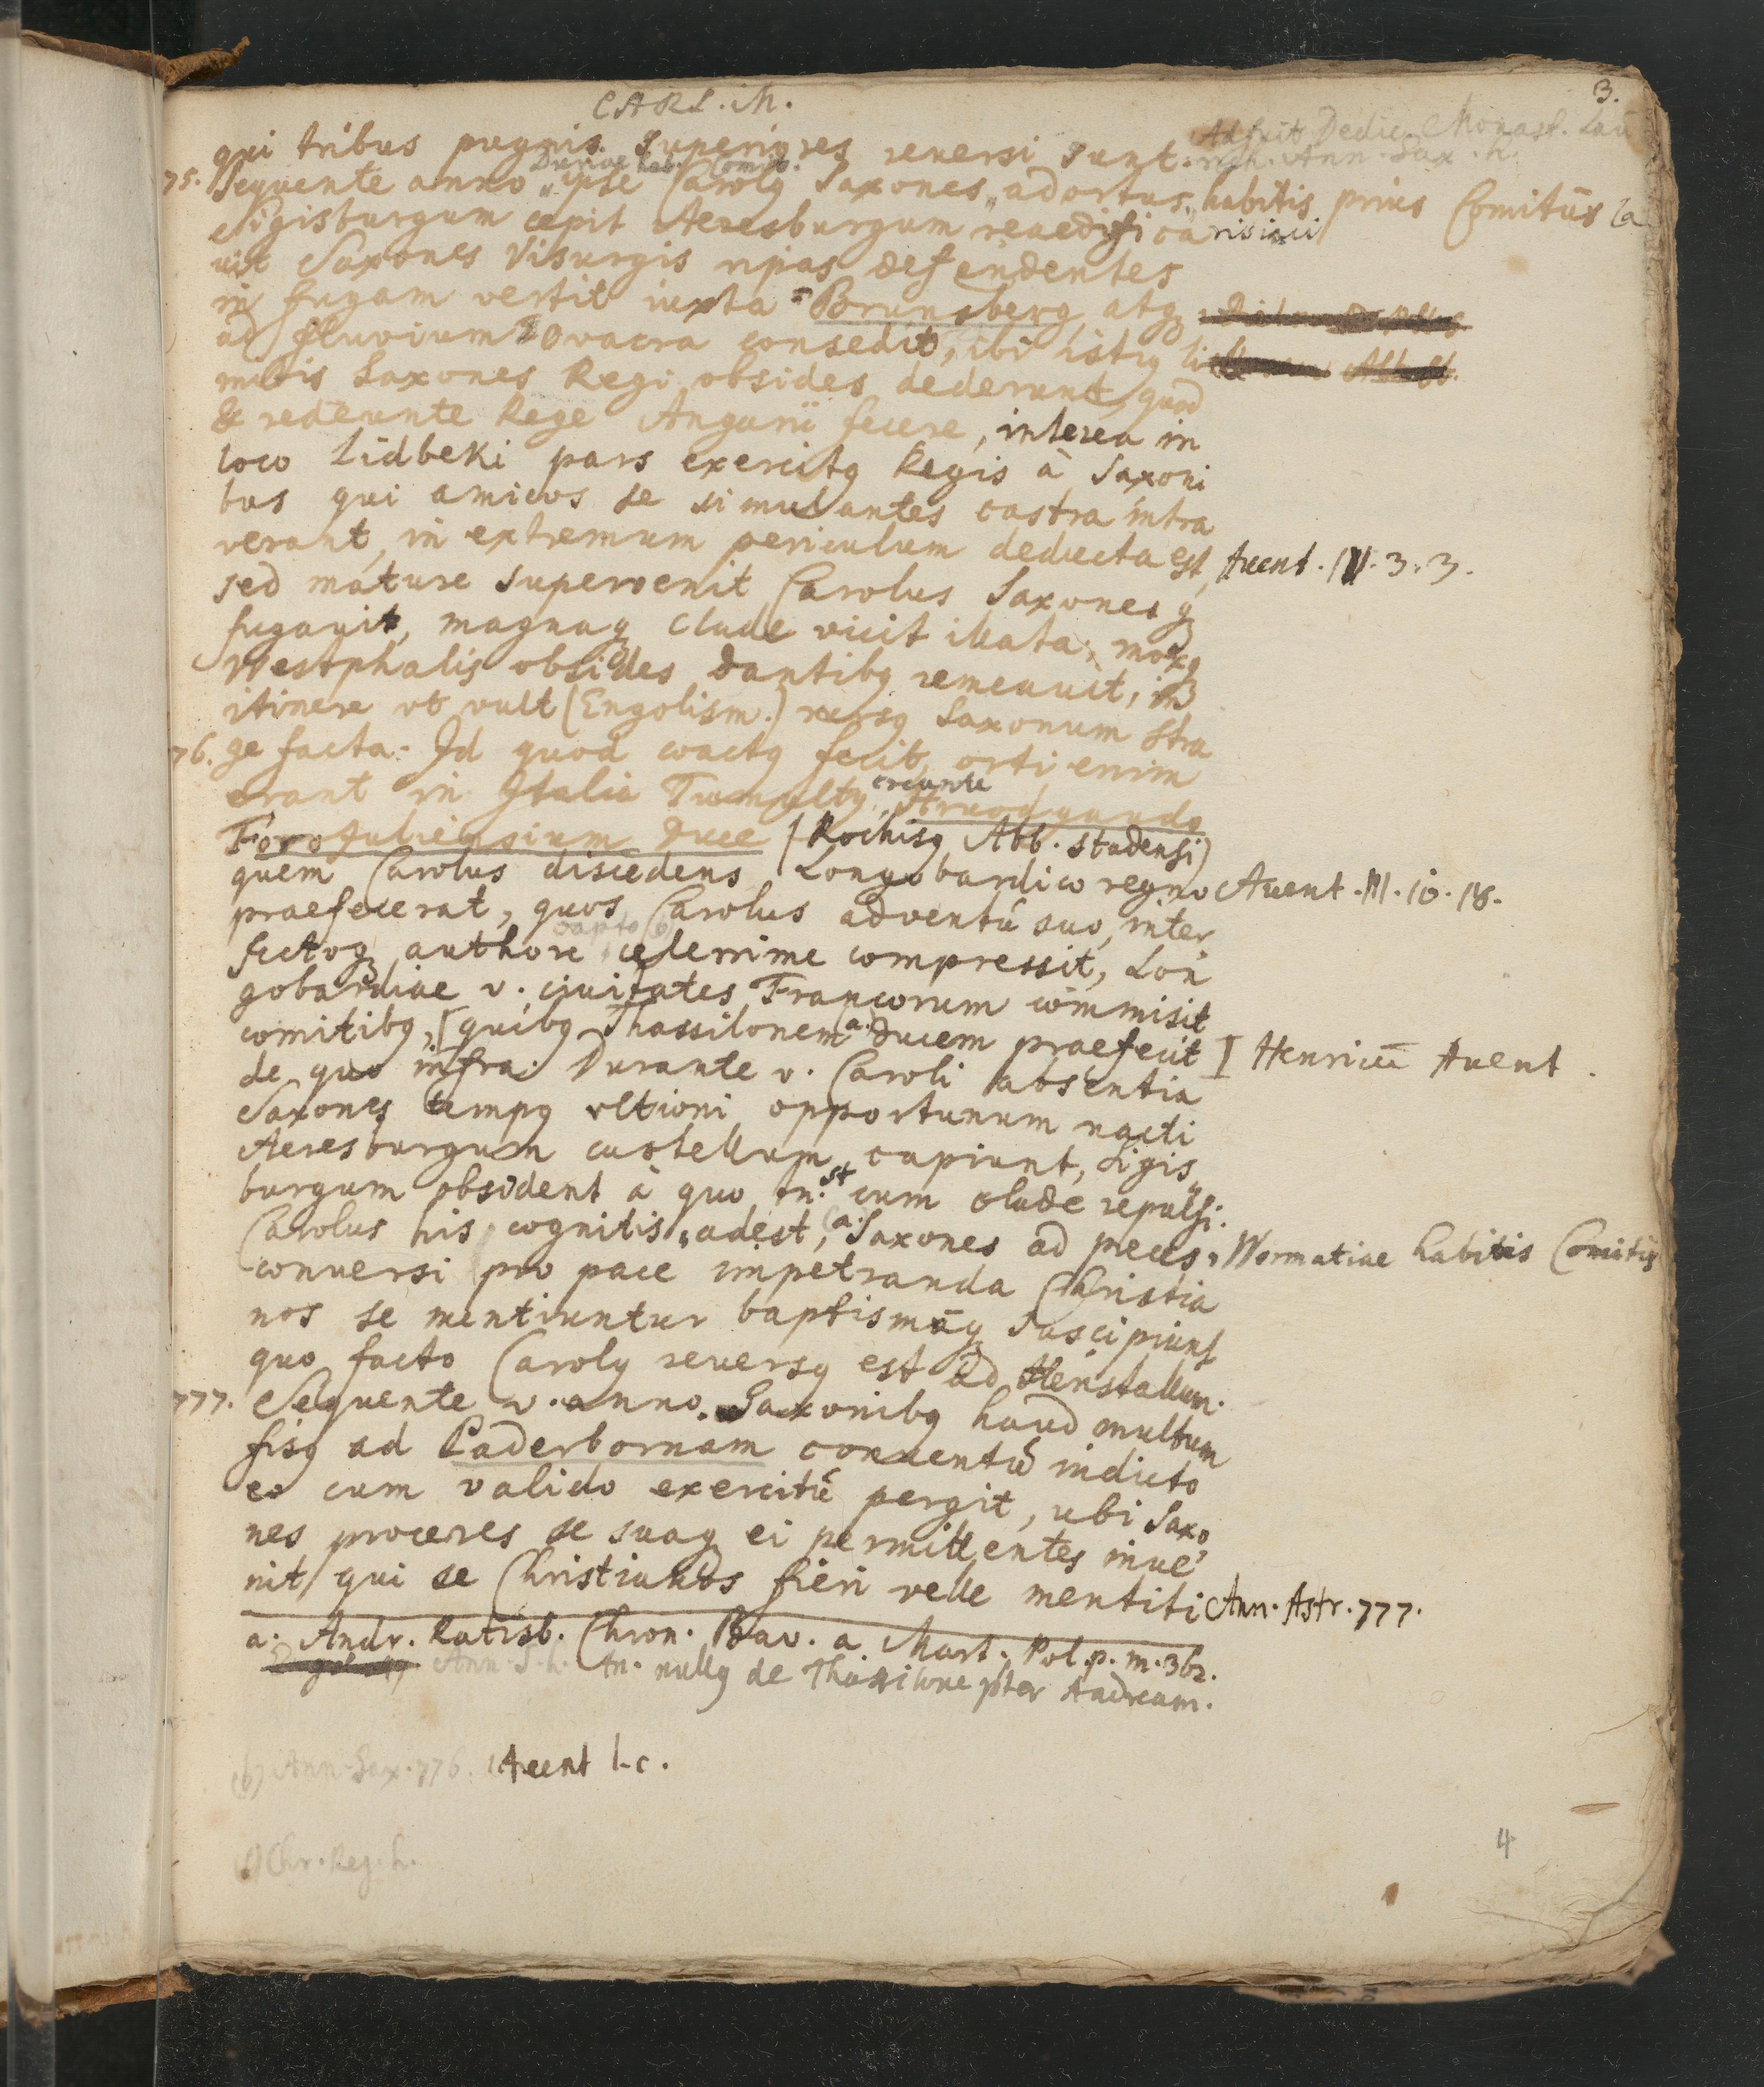 CARL. M.
3.
qui tribus pugnis superiores reversi sunt.
Adfuit Dedic. Monast. Lau
resh. Ann. Sax. h.
Duriae hab. Comit.
75. Sequente anno ipse Carolq Saxones adortus, habitis prius Comitiis
Sigisburgum cepit Aeresburgum reaedifica
uit Saxones Visurgis ripas defendentes
in fugam vertit iuxta Brunsberg atq
ad fluvium Ovacra consedit, ibi
mitis Saxones Regi obsides dederunt, quod
& redeunte Rege Angarii fecere, interea in
loco Lidbeki pars exercitq Regis à Saxoni
bus qui amicos se simulantes castra intra
verant, in extremum periculum deducta est, Auent. IV. 3. 3.
sed mature supervenit Carolus Saxones q
fugauit, magnaq clade vicit illata, moxq
Westphalis obsides dantibq remeauit, in
itinere vt vult (Engolism.) rursq Saxonum stra
76. ge facta. Id quod coactq fecit, orti enim
erant in Italia Tumultq, creante Hruodgaudo
Forojuliensium Duce (Rochisq Abb. Stadensi)
quem Carolus discedens Longobardico regno Auent. III. 10. 18.
praefecerat, quos Carolus adventú suo, inter
capto (b)
fectoq authore celerrime compressit, Lon
gobardiae v. ciuitates Francorum commisit
comitibq, [quibq Thassilonem (a. Ducem praefecit I Henricū Auent.
de quo infra. Durante v. Caroli absentia
Saxones tempq vltioni opportunum nacti
Aeresburgum castellum capiunt, Sigis
burgum obsident à quo tn. st cum clade repulsi.
Carolus his cognitis, adest, (a. Saxones ad preces, Wormatiae habitis Comitiis
conuersi pro pace impetranda Christia
nos se mentiuntur baptismāq suscipiunt
quo facto Carolq reuersq est ad Henstallum.
777. Sequente v. anno. Saxonibq haud multum
fisq ad Paderbornam conuentú indicto
eo cum valido exercitú pergit, ubi Saxo
nes proceres se suaq ei permittentes inue
nit, qui se Christianos fieri velle mentiti Ann. Astr. 777.
a. Andr. Ratisb. Chron. Bav. a Mart. Pol. p. m. 362.
Ann. S. h. tn. nullq de Thassilone pter Andream.
(b) Ann. Sax. 776. Auent l. c.
Chr. Reg. h.
4